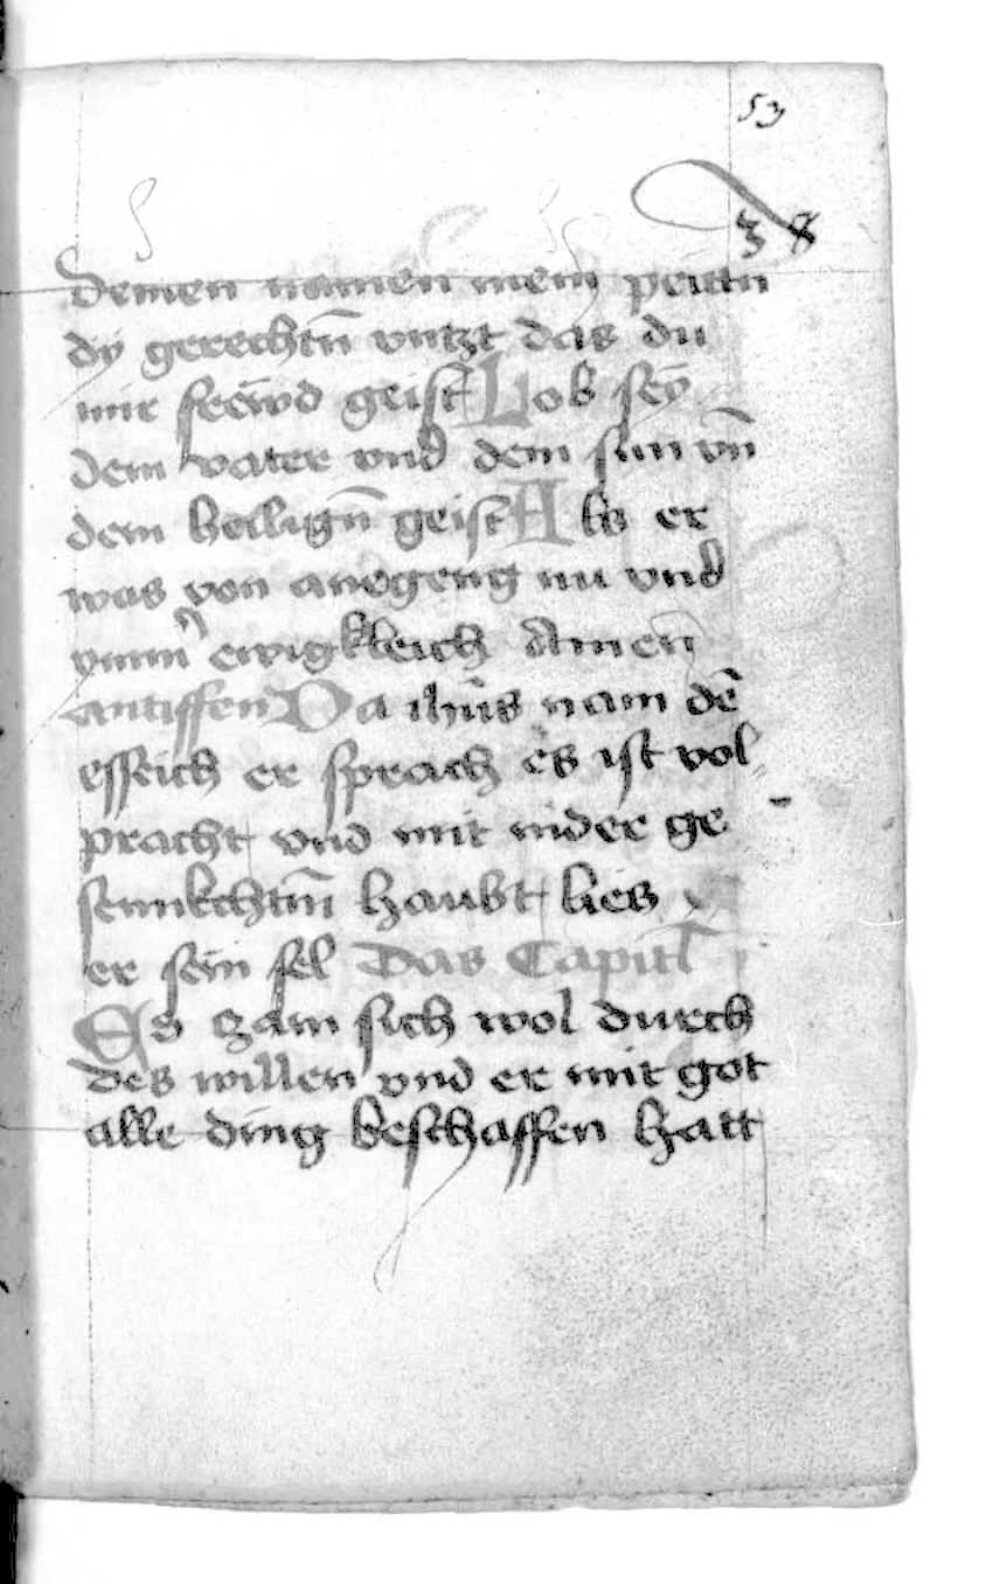 53
38
deinen namen mein peittn
dy gerechtn̄ vntzt das du
mir frewd geist Lob sey
dem vater vnd dem sun vn̄
dem heilign̄ geist Als er
was von anegeng nu vnd
ymm̄ ewigkleich Amen
antiffen Da ihūs nam dē
esseich er sprach es ist vol
pracht vnd mit nider ge
sennkchtm̄ haubt lies
er sein sel Das Capitl
Es zam sich wol durch
des willen vnd er mit got
alle ding beschaffen hatt